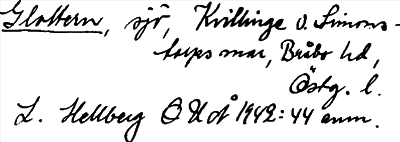 Glottern, sjö, Kvillinge o. Simons-
torps snar, Bråbo hd,
Östg. l.
L. Hellberg OUÅ 1942:44 anm.